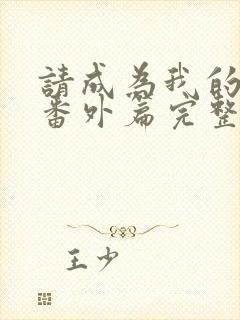 請成為我的
番外篇完整
王少